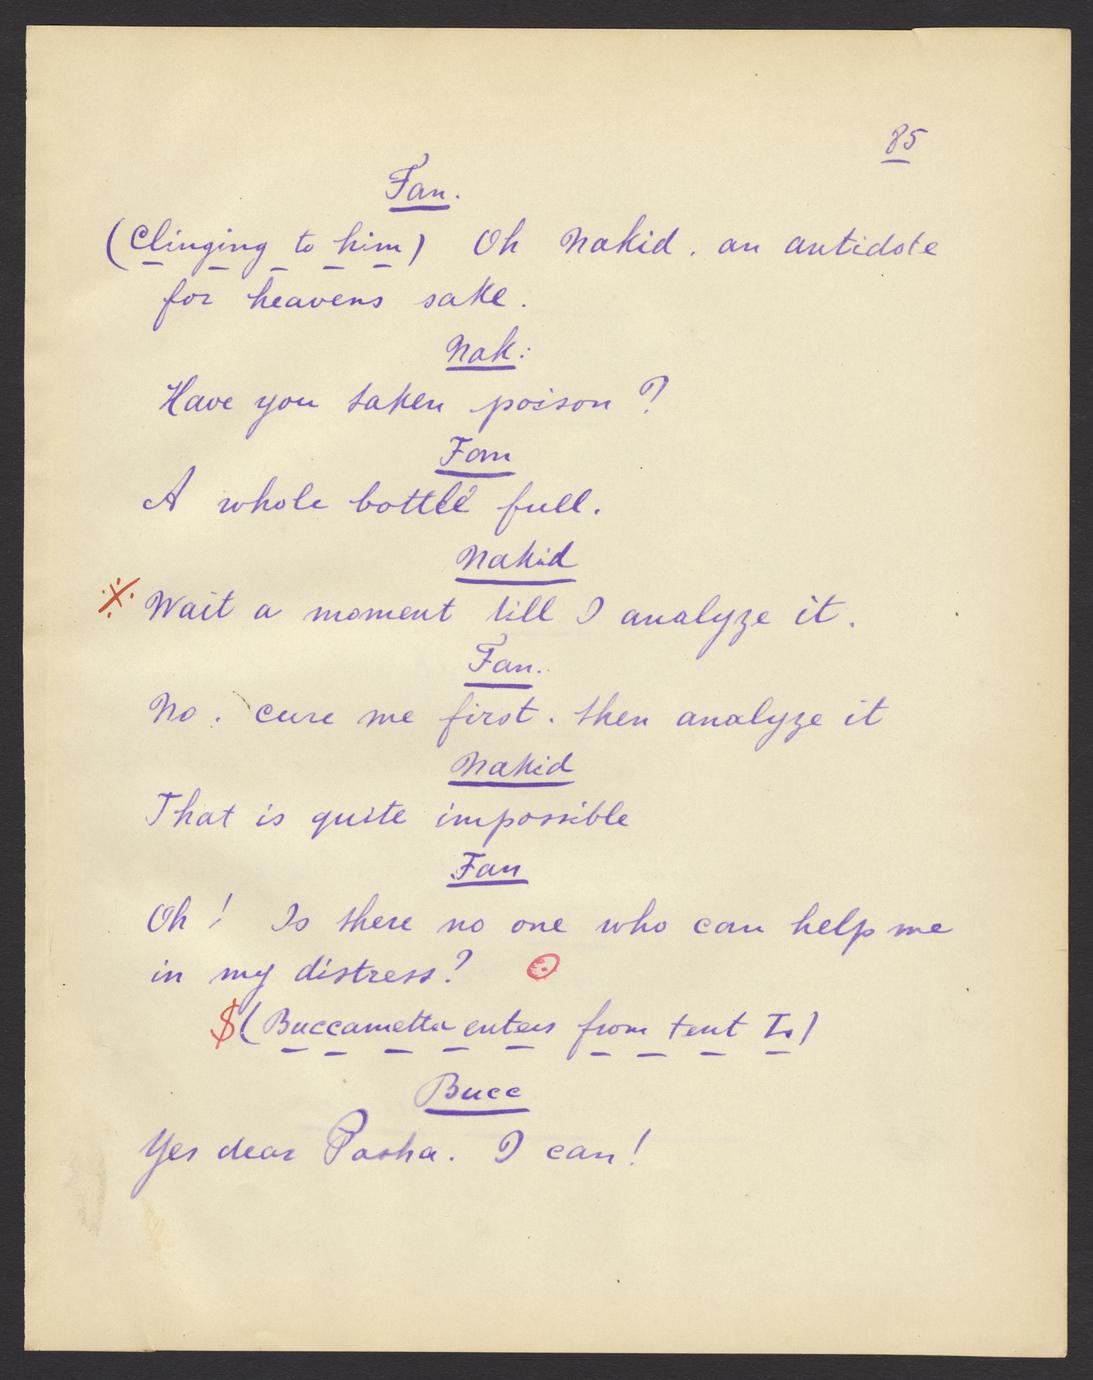 85
Fan.
(Clinging to him) Oh Nakid. an antidote
for heavens sake.
Nak:
Have you taken poison?
Fan
A whole bottle full.
Nakid
※ Wait a moment till I analyze it.
Fan.
No. cure me first. then analyze it
Nakid
That is quite impossible
Fan
Oh! Is there no one who can help me
in my distress?
$(Buccametta enters from tent
Bucc
Yes dear Pasha. I can!